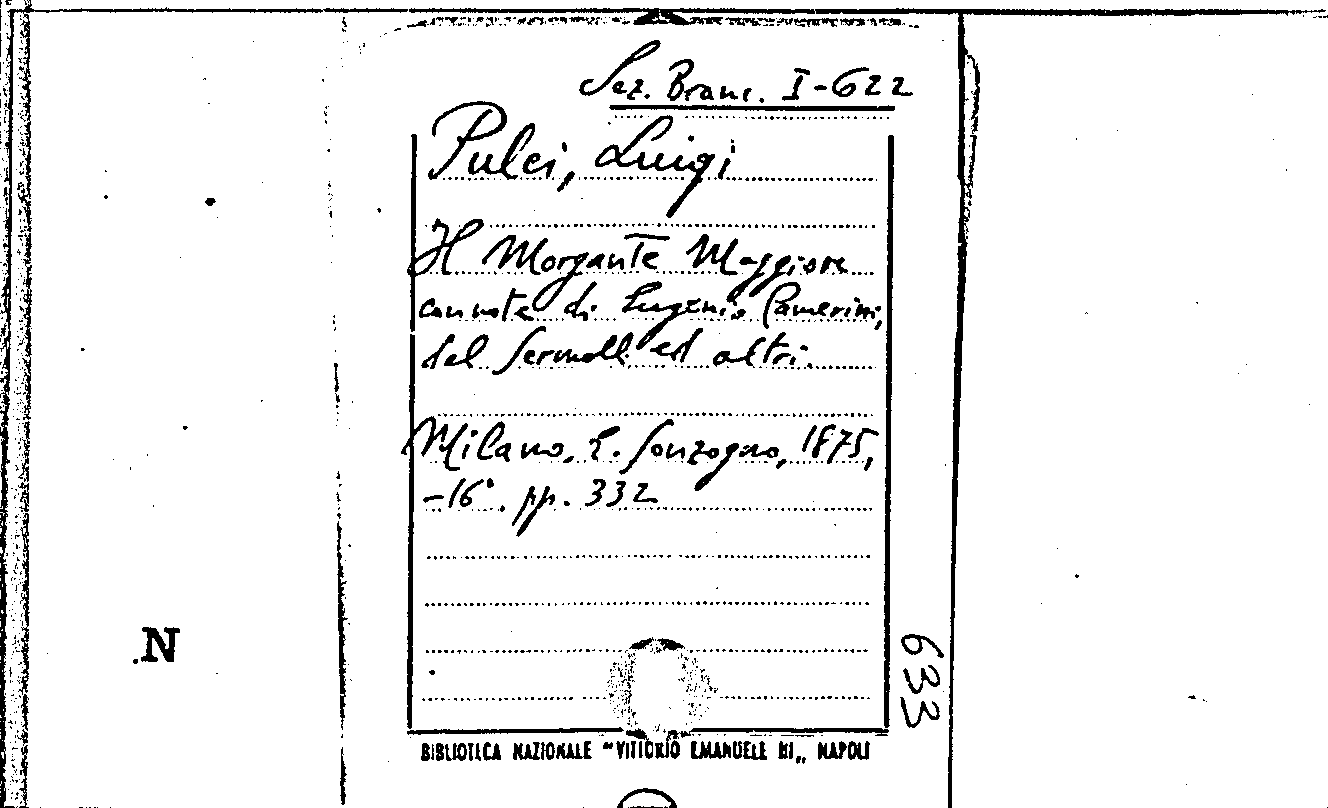 Sez. Branc. I-622
Pulci, Luigi
Il Morgante Maggiore
con note di Eugenio Camerini,
del Sermolli ed altri.
Milano, E. Sonzogno, 1875,
-16°. pp. 332
633
N
BIBLIOTECA NAZIONALE "VITTORIO EMANUELE III„ NAPOLI